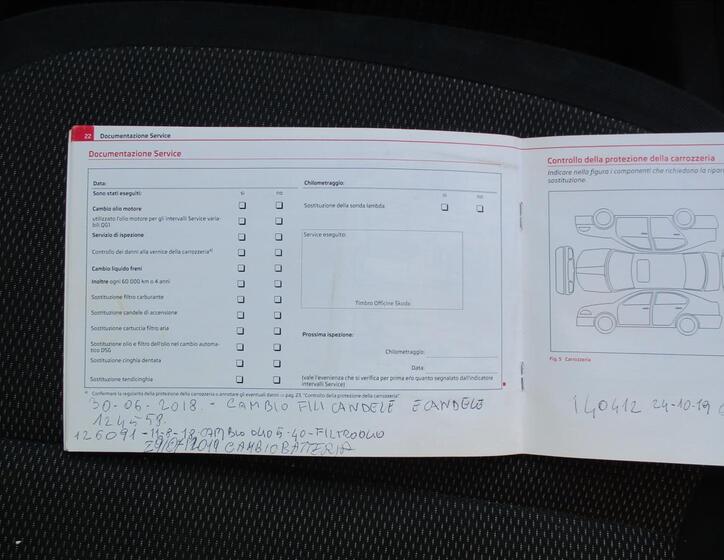 22 Documentazione Service
Documentazione Service
Data:
Sono stati eseguiti: si no
Cambio olio motore
utilizzato l'olio motore per gli intervalli Service varia-
bili QG1
Servizio di ispezione
Controllo dei danni alla vernice della carrozzeria a)
Cambio liquido freni
Inoltre ogni 60 000 km o 4 anni
Sostituzione filtro carburante
Sostituzione candele di accensione
Sostituzione cartuccia filtro aria
Sostituzione olio e filtro dell'olio nel cambio automa-
tico DSG
Sostituzione cinghia dentata
Sostituzione tendicinghia
Chilometraggio:
si no
Sostituzione della sonda lambda
Service eseguito:
Timbro Officine Skoda
Prossima ispezione:
Chilometraggio:
Data:
(vale l'evenienza che si verifica per prima e/o quanto segnalato dall'indicatore
intervalli Service)
a) Confermare la regolarità della protezione della carrozzeria o annotare gli eventuali danni ⇒ pag. 23, "Controllo della protezione della carrozzeria".
30-06-2018 - CAMBIO FILI CANDELE E CANDELE
124559.
126091-11-8-18 CAMBIO OLIO 5-40-FILTRO OLIO
CAMBIO BATTERIA
Controllo della protezione della carrozzeria
Indicare nella figura i componenti che richiedono la
sostituzione.
Fig. 5 Carrozzeria
140412 24-10-19